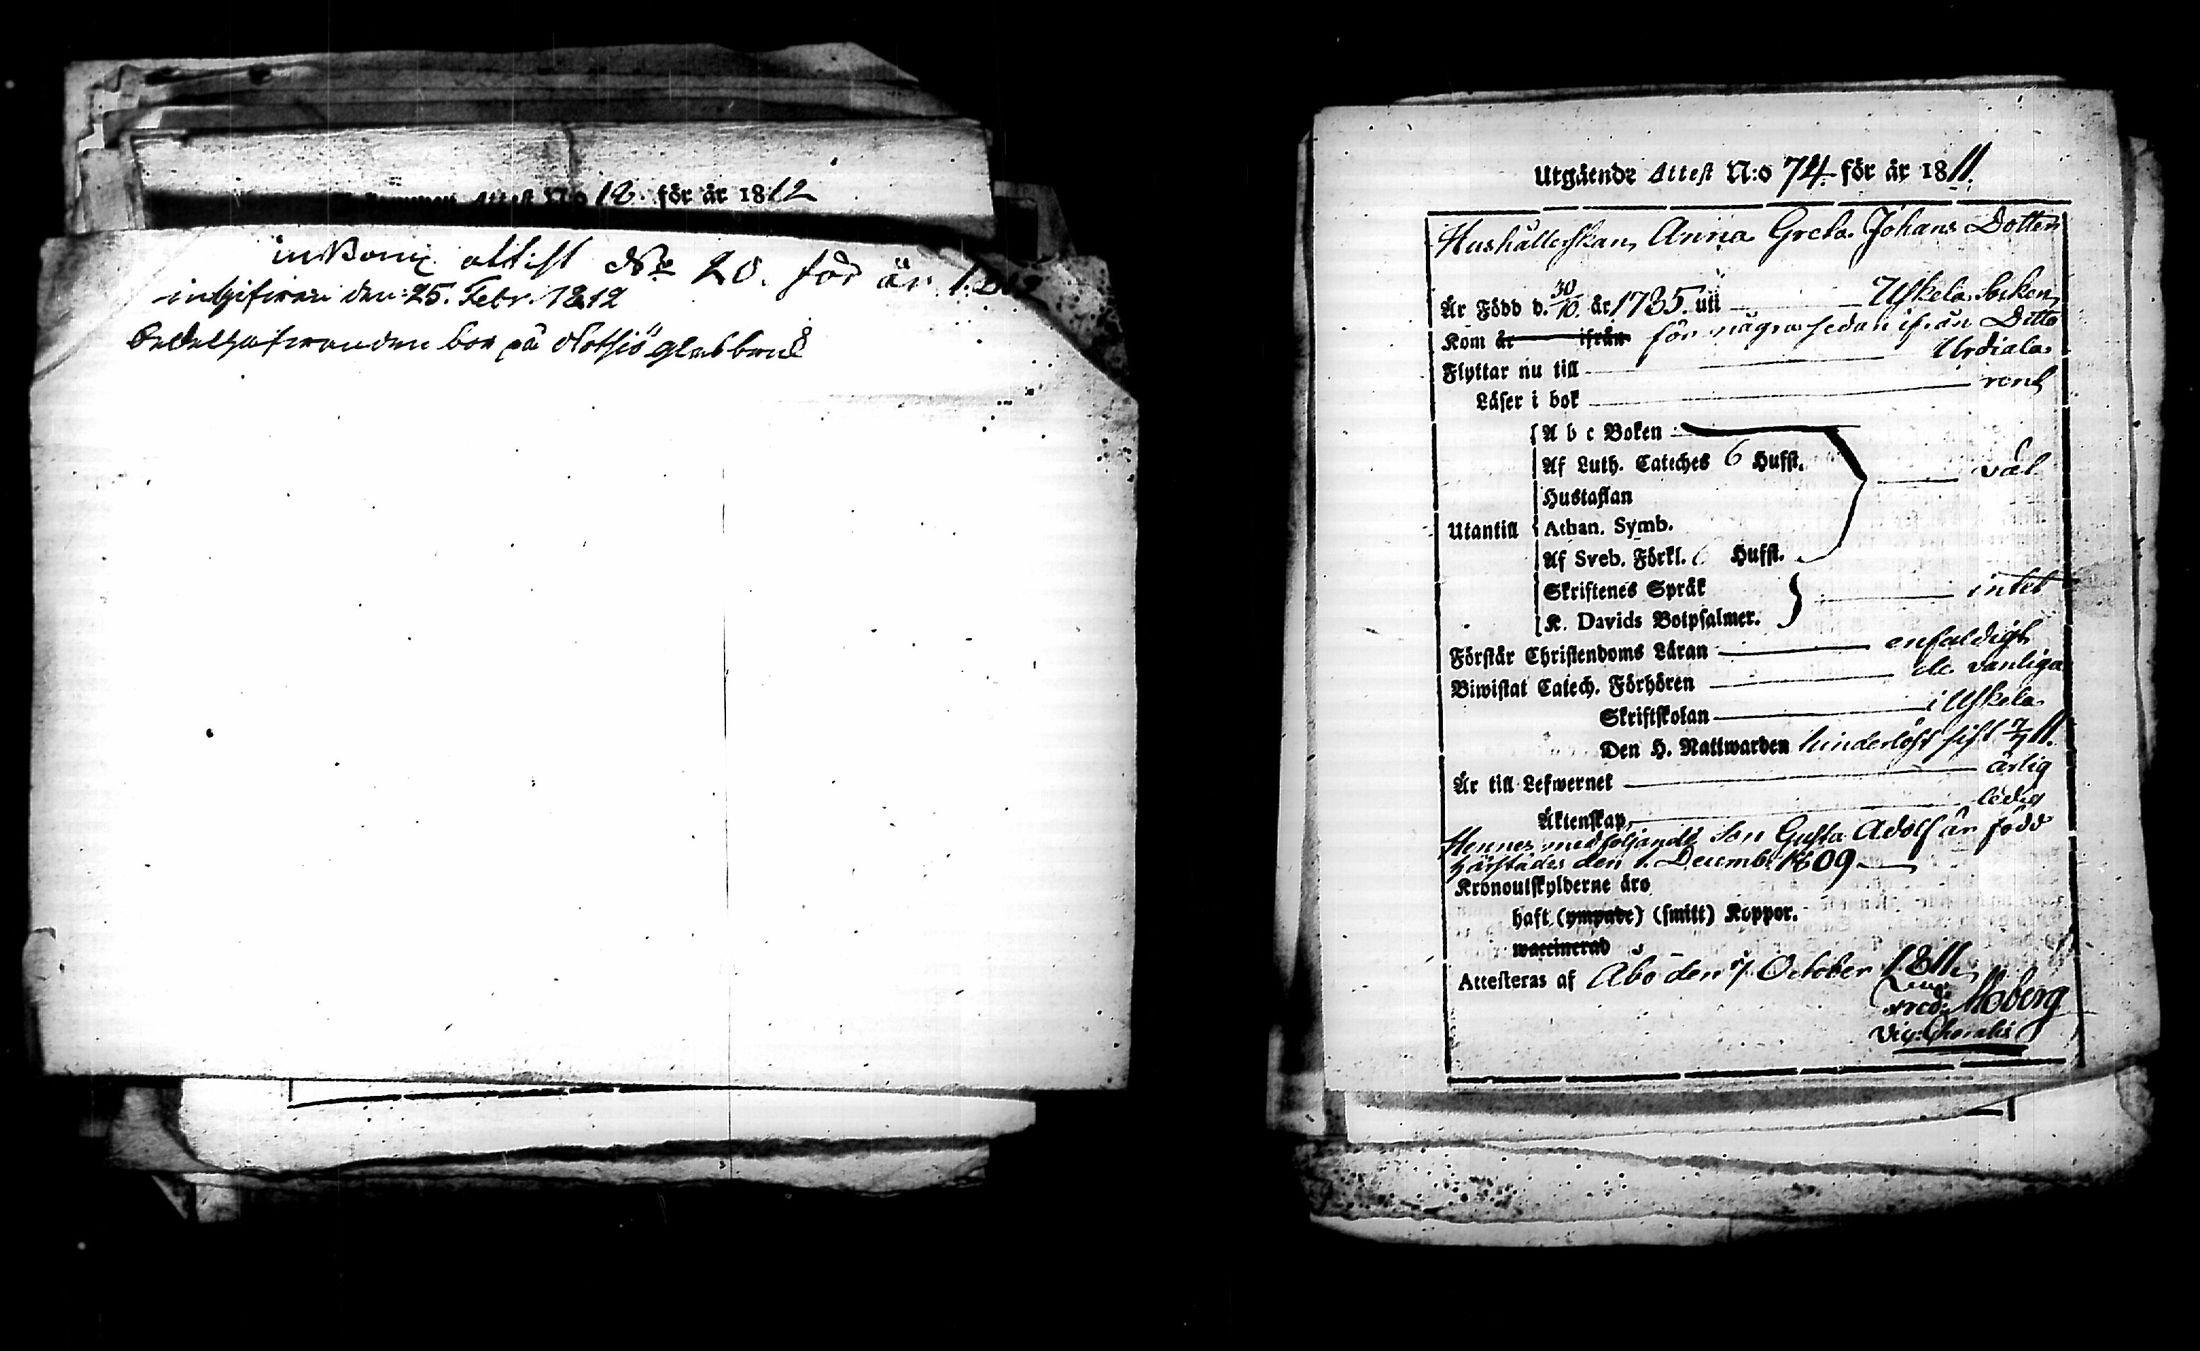 Attest N:o 12. för år 1812
inkom: attest No 20. för år 1812
ingifven den 25. Febr. 1812
bor på Notsjö glasbruk
Utgående Attest N:o 74 för år 1811.
Hushållerskan, Anna Greta Johans Dotter
Är Född d. 30/10. år 1785. uti Uskela Socken
Kom år ifrån för några sedan ifrån Ditto
Flyttar nu till Urdiala
Läser i bok rent
A b c Boken
Af Luth. Cateches 6 Hufst. väl
Hustaflan
Utantill Athan. Symb.
Af Sveb. Förkl. 6 Hufst.
Skriftenes Språk intet
K. Davids Botpsalmer.
Förstår Christendoms Läran enfaldigt
Biwistat Catech. Förhören de vanliga
Skriftskolan i Uskela
Den H. Nattwarden hinderlöst sist 7/7 11.
Är till Lefwernet ärlig
Äktenskap, ledig
Hennes medföljande Son Gusta Adolf är född
härstädes den 1. Decemb: 1809
Kronoutskylderne äro
haft (ympade) (smitt) Koppor.
waccinerad
Attesteras af Åbo den 7 October 1811.
Fred: Moberg
Vic: Choralis